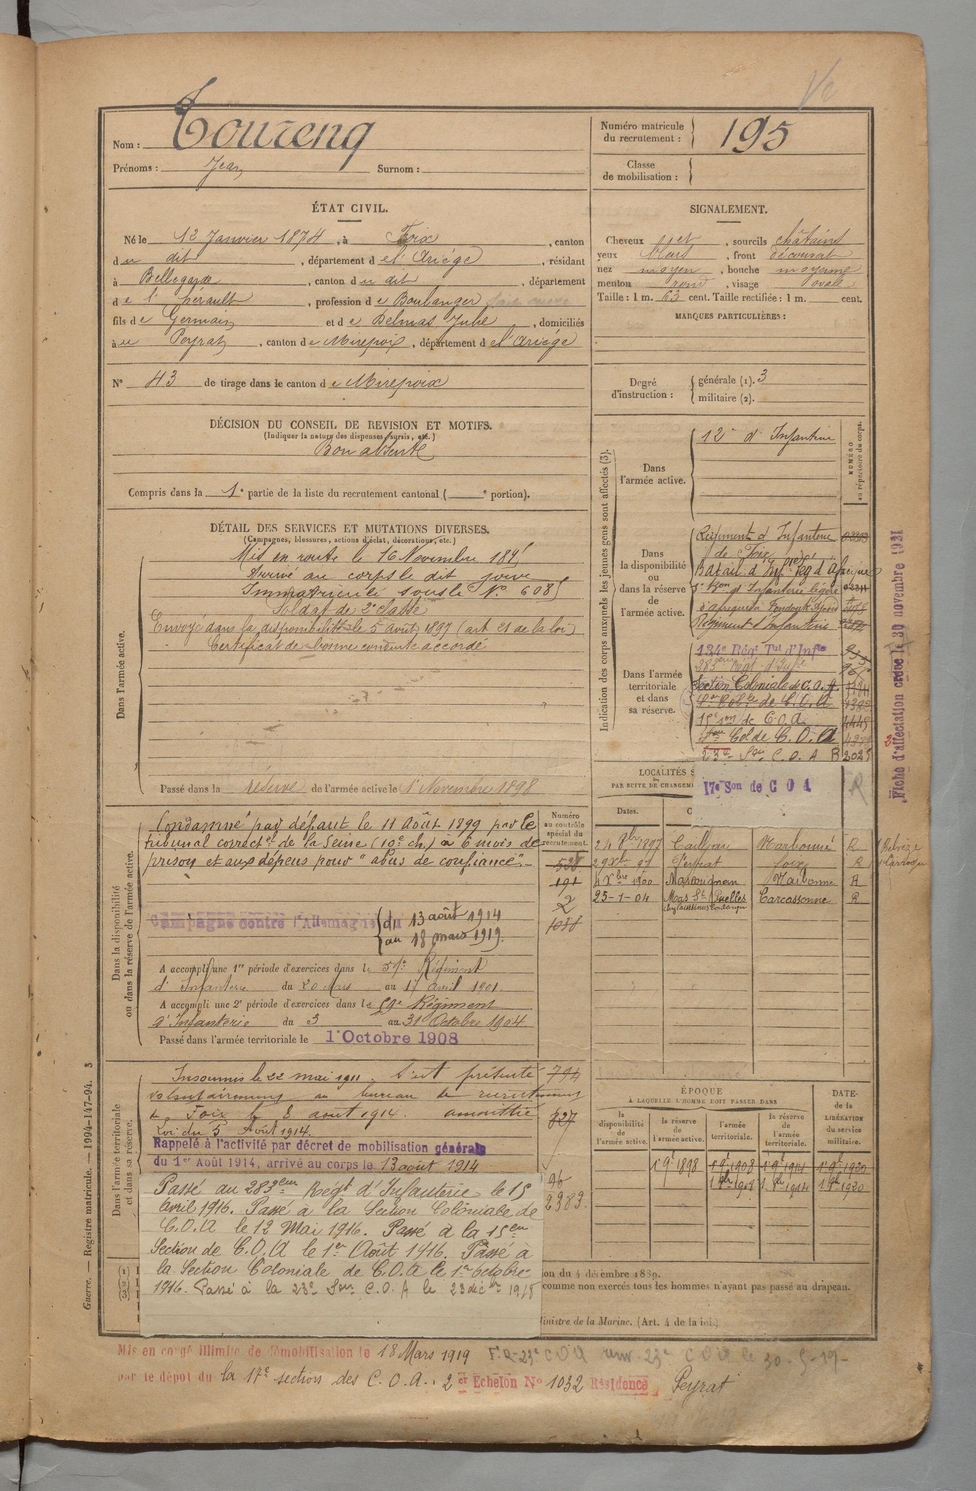 Nom : Toureng
Prénoms : Jean Surnom :
Numéro matricule du recrutement : 195
Classe de mobilisation :
ÉTAT CIVIL.
Né le 12 Janvier 1874, à Foix, canton
du dit, département de l'Ariège, résidant
à Bellegarde, canton du dit, département
de l'Hérault, profession de Boulanger
fils de Germain et de Delmas Julie, domiciliés
à Peyrat, canton de Mirepoix, département de l'Ariège
N° 43 de tirage dans le canton de Mirepoix
SIGNALEMENT.
Cheveux , sourcils châtains
yeux , front découvert
nez moyen, bouche moyenne
menton rond, visage ovale
Taille : 1 m. 63 cent. Taille rectifiée : 1 m. cent.
MARQUES PARTICULIÈRES :
Degré d'instruction : générale (1). 3
militaire (2).
DÉCISION DU CONSEIL DE REVISION ET MOTIFS.
(Indiquer la nature des dispenses, sursis, etc.)
Bon absent
Compris dans la 1e partie de la liste du recrutement cantonal ( e portion).
DÉTAIL DES SERVICES ET MUTATIONS DIVERSES.
(Campagnes, blessures, actions d'éclat, décorations, etc.)
Dans l'armée active.
Mis en route le 16 Novembre 1895
Arrivé au corps le dit jour
Immatriculé sous le N° 6085
Soldat de 2e classe
Envoyé dans la disponibilité le 5 août 1897 (art 21 de la loi)
Certificat de bonne conduite accordé
Passé dans la réserve de l'armée active le 1 Novembre 1898
Indication des corps auxquels les jeunes gens sont affectés (3).
NUMÉRO au répertoire du corps.
Dans l'armée active.
12e d'Infanterie
Dans la disponibilité ou dans la réserve de l'armée active.
Régiment d'Infanterie
de Foix
d'Infanterie légère
Régiment d'Infanterie
Dans l'armée territoriale et dans sa réserve.
134e Régt Tal d'Infie
283eme Régt d'Infie
Section Coloniale de C.O.A.
Son Cole de C.O.A
15e son de C.O.A.
Son Col de C.O.A
23e Son C.O.A B 2023
17e Son de C O A
Fiche d'affectation créée le 30 novembre 1931
LOCALITÉS
PAR SUITE DE CHANGEM
Dates.
24 8bre 1897 Cailhau Narbonne R
Peyrat Foix R
4 Xbre 1900 Narbonne R
25-1-04 Mas Stes Puelles Carcassonne R
Dans la disponibilité ou dans la réserve de l'armée active.
Numéro au contrôle spécial du recrutement.
Condamné par défaut le 11 Août 1899 par le
tribunal correctel de la Seine (10e ch) à 6 mois de
prison et aux dépens pour "abus de confiance".
191
2
Campagne contre l'Allemagne du 13 août 1914
au 18 mars 1919.
A accompli une 1re période d'exercices dans le Régiment
d'Infanterie du 20 Mars au 17 avril 1901.
A accompli une 2e période d'exercices dans le Régiment
d'Infanterie du 3 au 31 Octobre 1904
Passé dans l'armée territoriale le 1 Octobre 1908
Dans l'armée territoriale et dans sa réserve.
Insoumis le 22 mai 1911. S'est présenté
volontairement au bureau de recrutement
de Foix le 8 août 1914. amnistié
Loi du 5 Août 1914.
794
827
Rappelé à l'activité par décret de mobilisation générale
du 1er Août 1914, arrivé au corps le 13 août 1914
Passé au 283eme Regt d'Infanterie le 15
Avril 1916. Passé à la Section Coloniale de
C.O.A le 12 Mai 1916. Passé à la 15eme
Section de C.O.A le 1er Août 1916. Passé à
la Section Coloniale de C.O.A le 1er Octobre
1916. Passé à la 23e Son C.O.A le 23 décbre 1918
96
2383.
ÉPOQUE
À LAQUELLE L'HOMME DOIT PASSER DANS
la disponibilité de l'armée active.
la réserve de l'armée active.
l'armée territoriale.
la réserve de l'armée territoriale.
DATE de la LIBÉRATION du service militaire.
1 9e 1898
on du 4 décembre 1889.
comme non exercés tous les hommes n'ayant pas passé au drapeau.
Ministre de la Marine. (Art. 4 de la loi.)
Guerre. — Registre matricule. — 1994-147-94. 3
Mis en congé illimité de démobilisation le 18 Mars 1919
par le dépot du la 17e section des C.O.A. 2 Echelon N° 1032 Résidence Peyrat